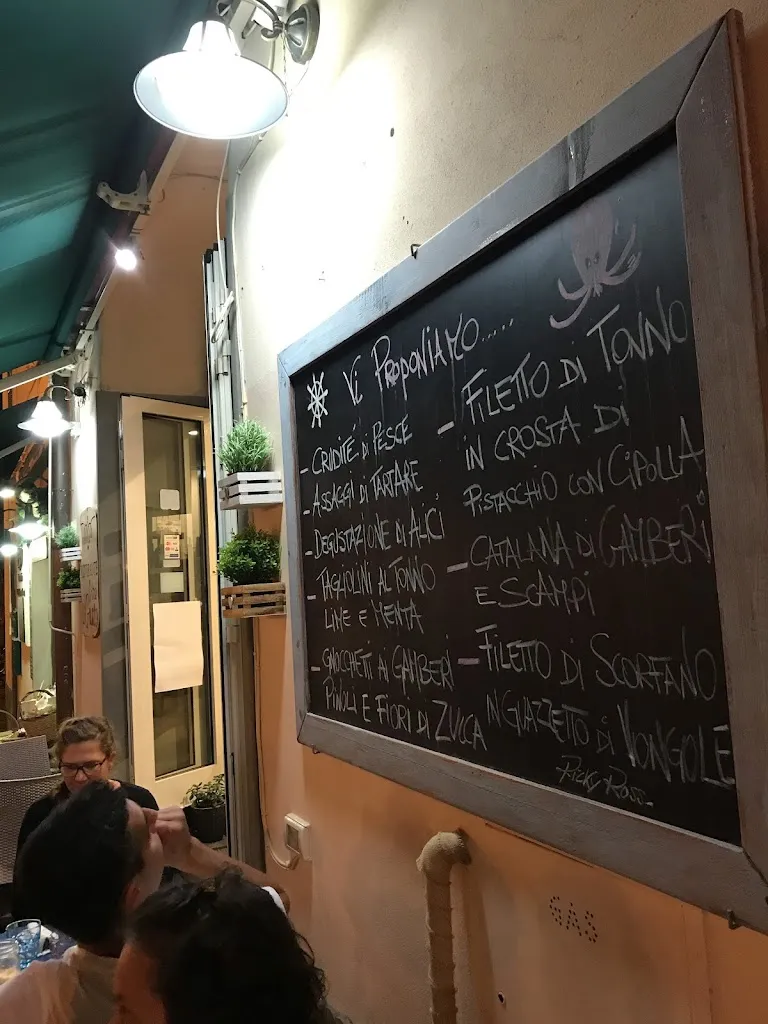 Vi Proponiamo.....
- Crudité di Pesce
- Assaggi di Tartare
- Degustazione di Alici
- Tagliolini al Tonno
Lime e Menta
- Gnocchetti ai Gamberi
Pinoli e Fiori di Zucca
- Filetto di Tonno
in crosta di
Pistacchio con Cipolla
- Catalana di Gamberi
e Scampi
- Filetto di Scorfano
in Guazzetto di Vongole
Ricky Rosso
GAS